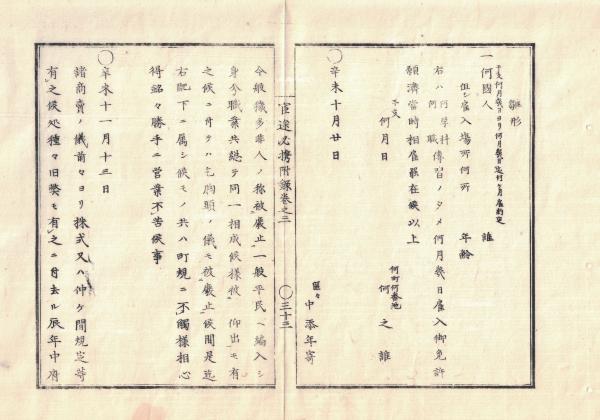 雛形
干支何月幾日ヨリ何月幾日迄何ヶ月雇約定
一何國人 誰
但シ雇入場所何所 年齢
右ハ何学科何職傳習ノタメ何月幾日雇入御免許
願濟當時相雇罷在候以上
干支
何月日
何町何番地
何之誰
區々
中添年寄
辛未十月廿日
官途必携附録巻之三
〇三十三
今般穢多非人ノ称被廢止一般平民ヘ編入シ
身分職業共総テ同一相成候様被 仰出モ有
之候ニ付テハ乞胸頭ノ儀モ被廢止候間是迄
右配下ニ属シ候モノ共ハ町規ニ不觸様相心
得銘々勝手ニ営業不苦候事
辛未十一月十三日
諸商賣ノ儀前々ヨリ株式又ハ仲ケ間規定等
有之候処種々旧弊モ有之ニ付去ル辰年中府